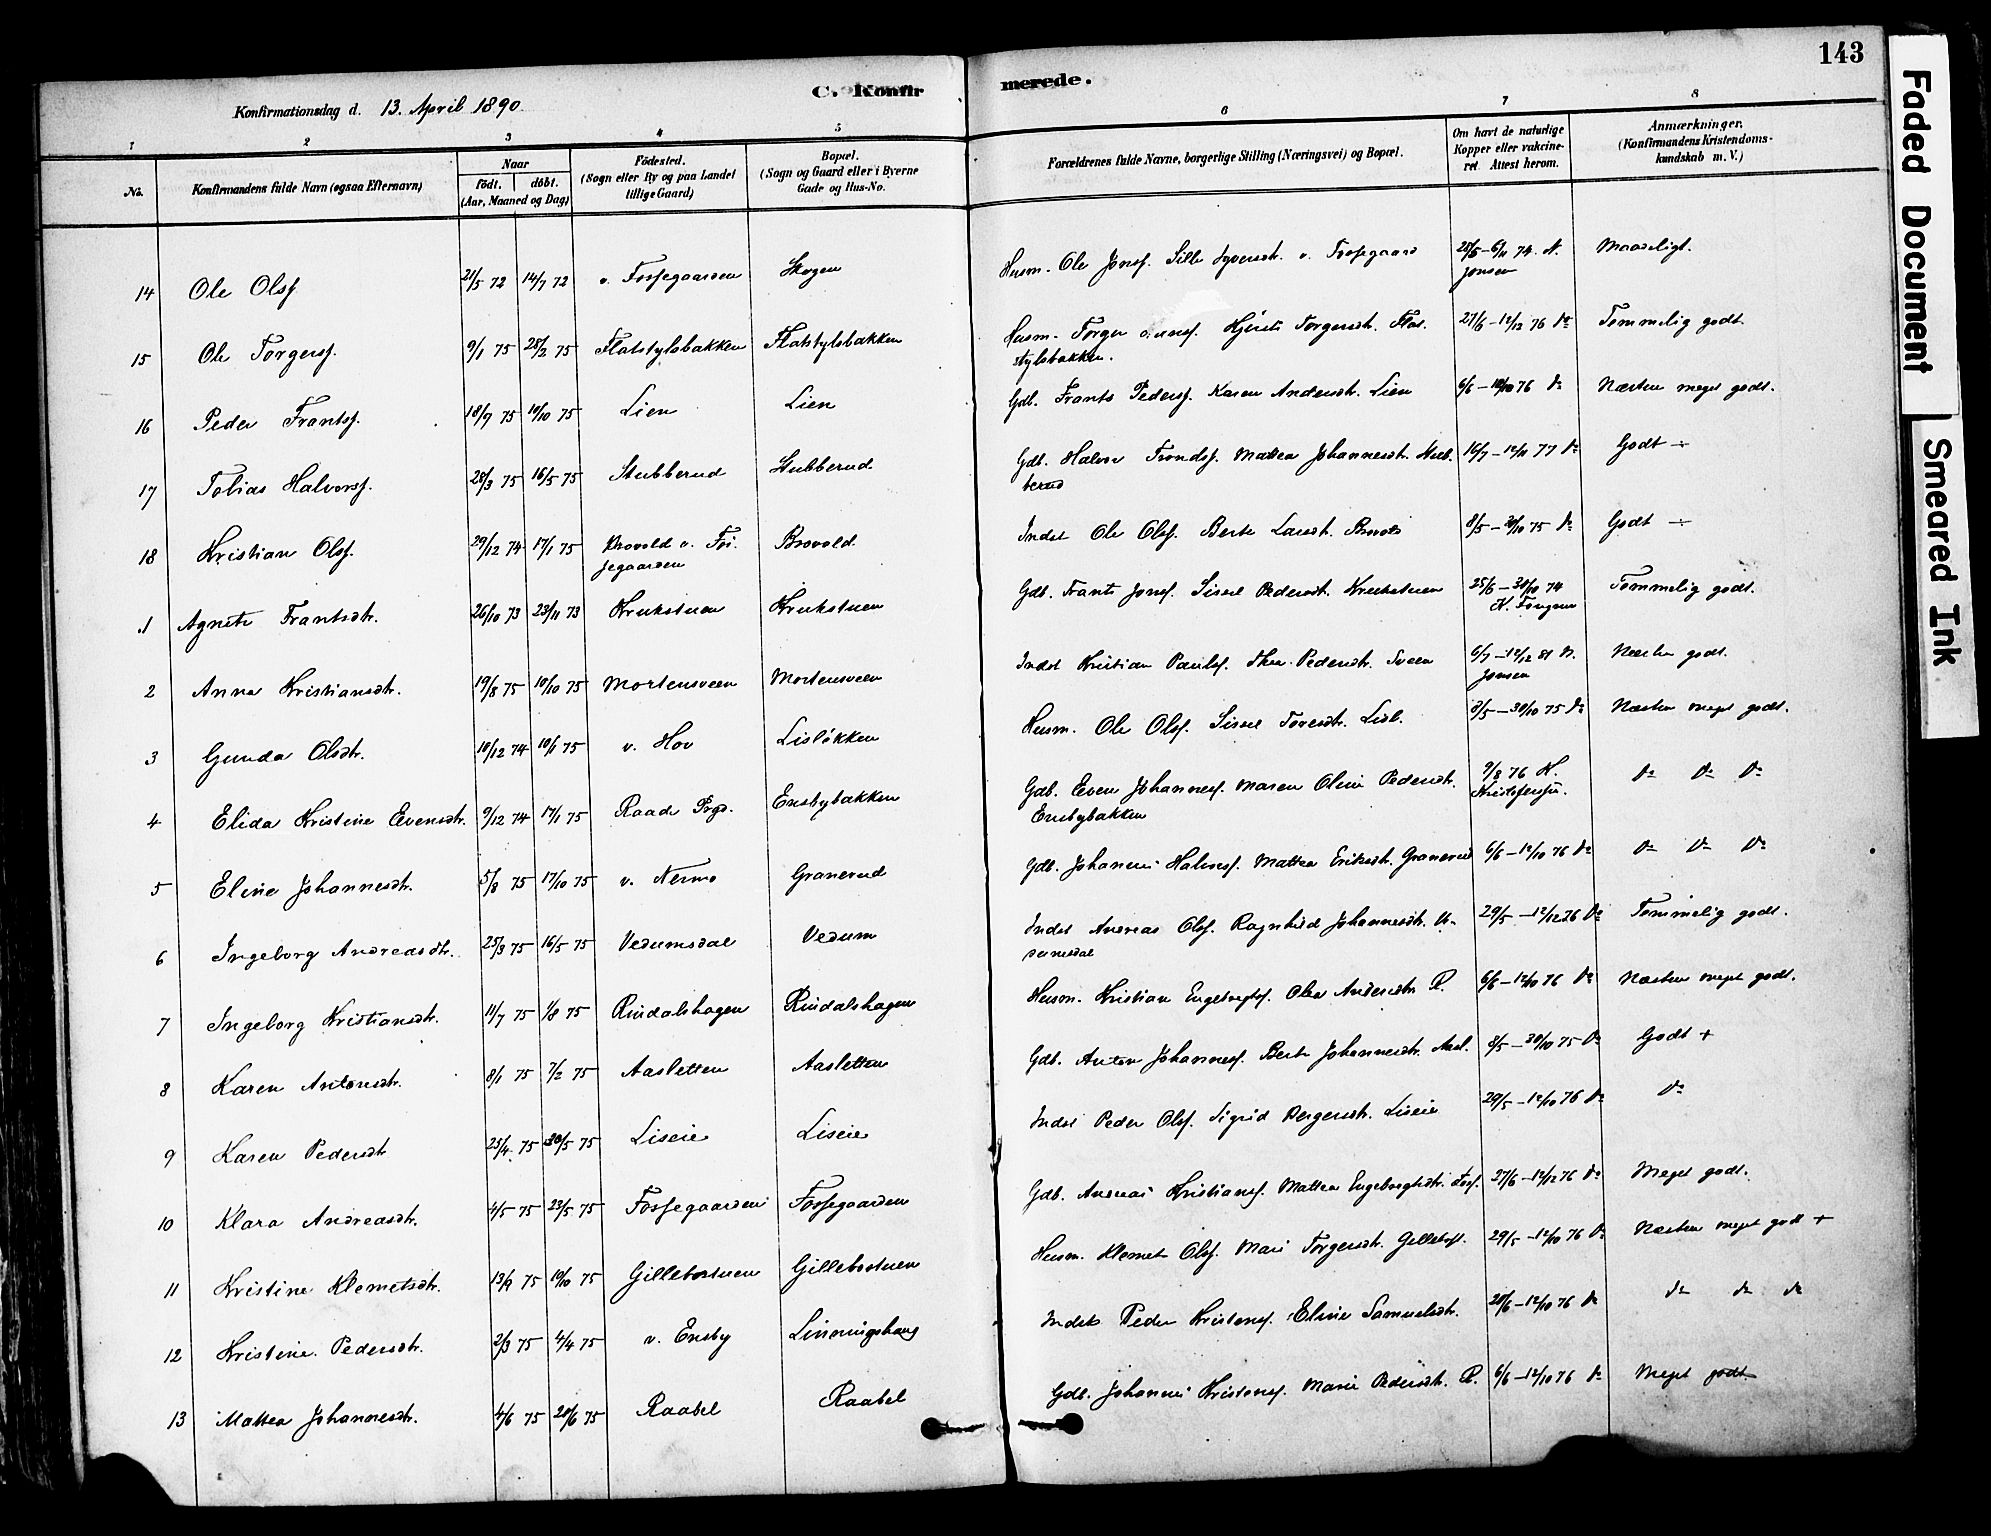 143
C. Konfirmerede.
Konfirmationsdag d. 13. April 1890.
1 2 3 4 5 6 7 8
No. Konfirmandens fulde Navn (ogsaa Efternavn) Naar født. døbt. (Aar, Maaned og Dag) Fødested. (Sogn eller By og paa Landet tillige Gaard) Bopæl. (Sogn og Gaard eller i Byerne Gade og Hus-No. Forældrenes fulde Navne, borgerlige Stilling (Næringsvei) og Bopæl. Om havt de naturlige Kopper eller vakcineret. Attest herom. Anmærkninger. (Konfirmandens Kristendomskundskab m. V.)
14 Ole Olsf. 21/5 72 14/7 72 v. Fossegaarden Skogen Husm. Ole Jonsf. Sille Syversdt. v. Fossegaard 28/5 – 6/11 74. N. Jonsen Maadeligt.
15 Ole Torgersf. 9/1 75 28/2 75 Flatstylsbakken Flatstylsbakken Husm. Torger Torgersdt. Flatstylsbakken. 27/6 – 12/12 76 Do Temmelig godt.
16 Peder Frantsf. 18/7 75 10/10 75 Lien Lien Gdb. Frants Pedersf. Karen Andersdt. Lien 6/6 – 12/10 76 Do Næsten meget godt.
17 Tobias Halvorsf. 28/3 75 16/5 75 Stubberud Stubberud Gdb. Halvor Trondsf. Mattea Johannesdt. Stubberud 16/7 – 12/11 77 Do Godt ÷
18 Kristian Olsf. 29/12 74 17/1 75 Brovold v. Fossegaarden Brovold Indst Ole Olsf. Berte Larsdt. Brovold 8/5 – 30/10 75 Do Godt ÷
1 Agnete Frantsdtr. 26/10 73 23/11 73 Krukstuen Krukstuen Gdb. Frants Jonsf. Sissel Pedersdt. Krukstuen 25/6 – 30/10 74 Temmelig godt.
2 Anna Kristiansdtr. 19/8 75 10/10 75 Mortensveen Mortensveen Indst Kristian Paulsf. Thea Pedersdt. Sveen 6/7 – 12/12 81 N. Jonsen Næsten godt.
3 Gunda Olsdtr. 10/12 74 10/1 75 v. Hov Lisløkken Husm. Ole Olsf. Sissel Toresdt. Lisl. 8/5 – 30/10 75 Do Næsten meget godt.
4 Elida Kristine Evensdtr. 9/12 74 17/1 75 Raade Prgd. Ensbybakken Gdb. Even Johannesf. Maren Oline Pedersdt. Ensbybakken 9/8 76 K. Do Do Do
5 Eline Johannesdtr. 5/8 75 17/10 75 v. Nermo Granerud Gdb. Johannes Halvorsf. Mattea Eriksdt. Granerud 6/6 – 12/10 76 Do Do Do Do
6 Ingeborg Andreasdtr. 25/3 75 16/5 75 Vedumsdal Vedum Indst Andreas Olsf. Ragnhild Johannesdt. Vedumsdal 29/5 – 12/12 76 Do Temmelig godt.
7 Ingeborg Kristiansdtr. 11/7 75 1/8 75 Rindalshagen Rindalshagen Husm. Kristian Engebregtsf. Olea Andersdtr R. 6/6 – 12/10 76 Do Næsten meget godt.
8 Karen Antonsdtr. 8/1 75 7/2 75 Aasletten Aasletten Gdb. Anton Johannesf. Berte Johannesdtr. Aasl. 8/5 – 30/10 75 Do Godt +
9 Karen Pedersdtr 25/4 75 30/5 75 Liseie Liseie Indst Peder Olsf. Sigrid Bergersdt. Liseie 29/5 – 12/10 76 Do Do
10 Klara Andreasdtr. 4/5 75 23/5 75 Fossegaarden Fossegaarden Gdb. Andreas Kristiansf. Mattea Engebregtsdt. Fosf. 27/6 – 12/12 76 Do Meget godt.
11 Kristine Klemetsdtr. 13/9 75 10/10 75 Gillebostuen Gillebostuen Husm. Klemet Olsf. Mari Torgersdt. Gillebost. 29/5 – 12/10 76 Do Næsten meget godt +
12 Kristine Pedersdtr. 2/3 75 4/4 75 v. Ensby Linningshaug Indst Peder Kristensf. Eline Samuelsdtr. 28/6 – 12/10 76 Do Do Do Do
13 Mattea Johannesdtr. 4/6 75 20/6 75 Raabel Raabel Gdb. Johannes Kristensf. Marie Pedersdt. R. 6/6 – 12/10 76 Do Meget godt
Faded Document
Smeared Ink